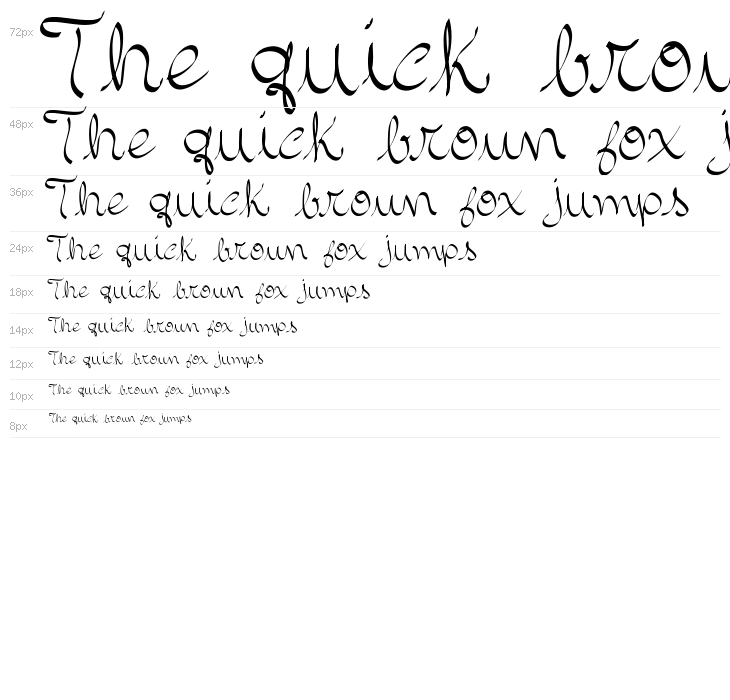 72px The quick brou
48px The quick broun fox j
36px The quick broun fox jumps
24px The quick broun fox jumps
18px The quick broun fox jumps
14px The quick broun fox jumps
12px The quick broun fox jumps
10px The quick broun fox jumps
8px The quick broun fox jumps